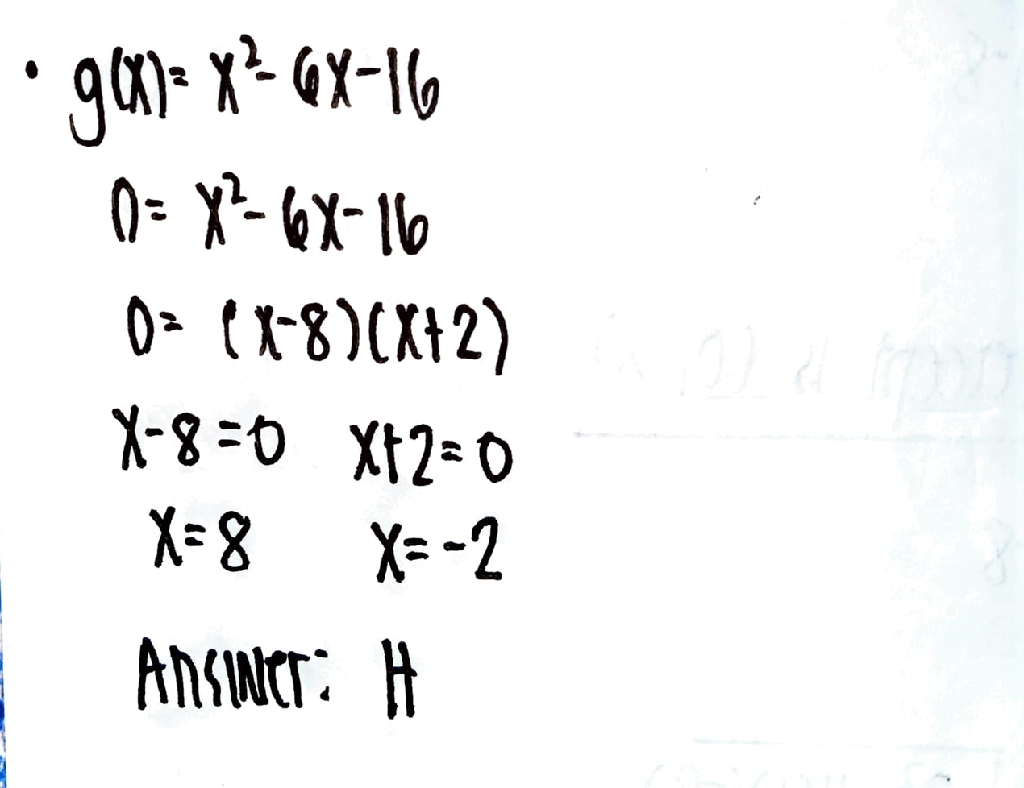 • g(x)= x²- 6x-16
0= x²- 6x-16
0= (x-8)(x+2)
x-8=0 x+2=0
x=8 x=-2
Answer: H